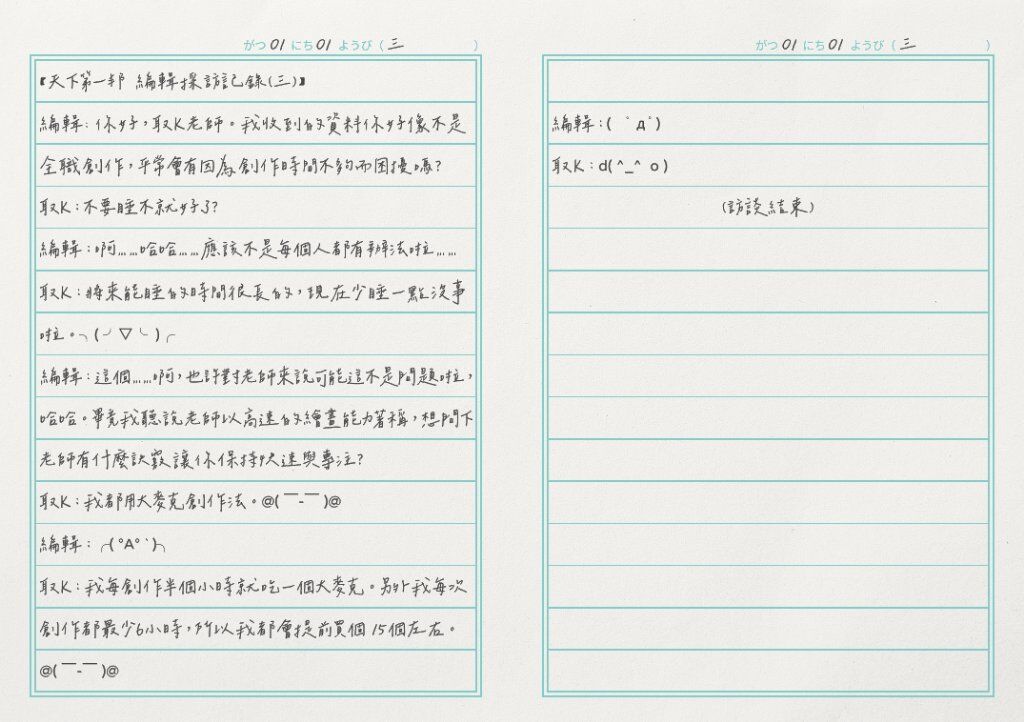 がつ 01 にち 01 ようび ( 三 )
【天下第一邦 編輯採訪記錄(三)】
編輯：你好，取K老師。我收到的資料你好像不是
全職創作，平常會有因為創作時間不夠而困擾嗎？
取K：不要睡不就好了？
編輯：啊……哈哈……應該不是每個人都有辦法啦……
取K：將來能睡的時間很長的，現在少睡一點沒事
啦。╮(╯▽╰)╭
編輯：這個……啊，也許對老師來說可能這不是問題啦，
哈哈。畢竟我聽說老師以高速的繪畫能力著稱，想問下
老師有什麼訣竅讓你保持快速與專注？
取K：我都用大麥克創作法。@(￣-￣)@
編輯：╭(°A°`)╮
取K：我每創作半個小時就吃一個大麥克。另外我每次
創作都最少6小時，所以我都會提前買個15個左右。
@(￣-￣)@
がつ 01 にち 01 ようび ( 三 )
編輯：(　゜д゜)
取K：d(^_^ o)
(訪談結束)